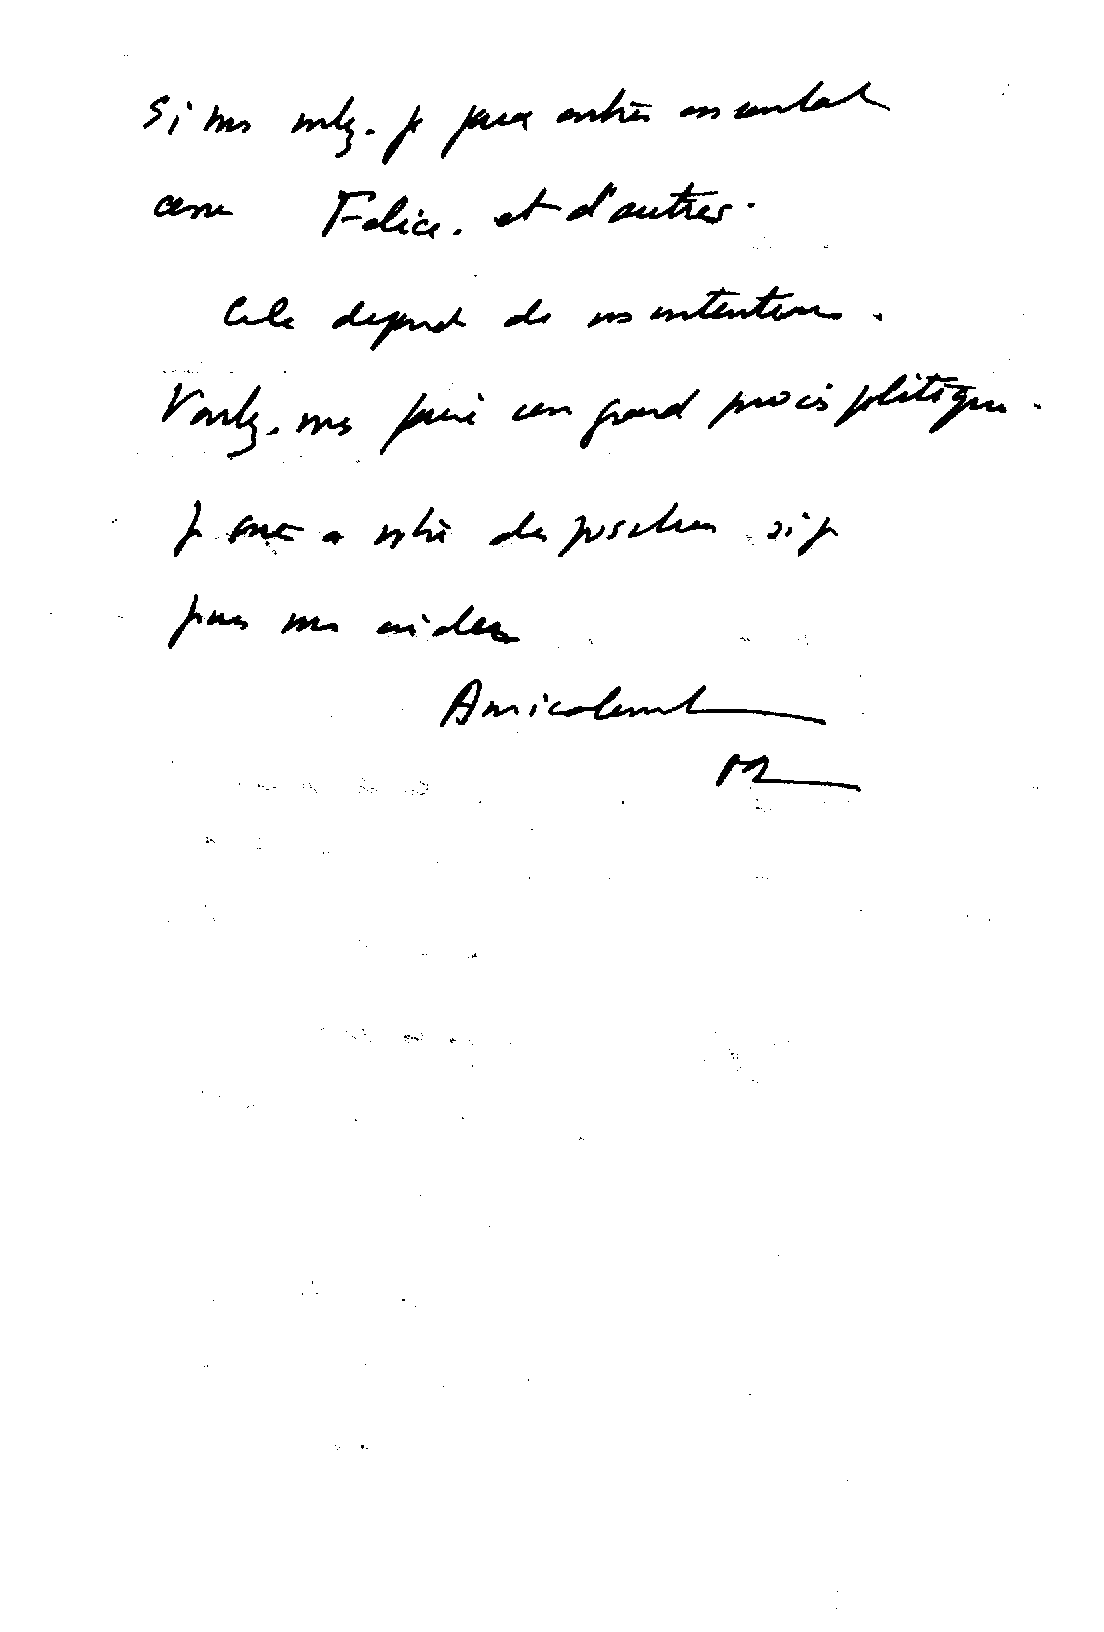 Si vous voulez. je peux entrer en contact
avec Felice. et d'autres.
Cela depend de vos intentions.
Voulez-vous faire un grand procès politique.
je suis a votre disposition si je
peux vous aider
Amicalement